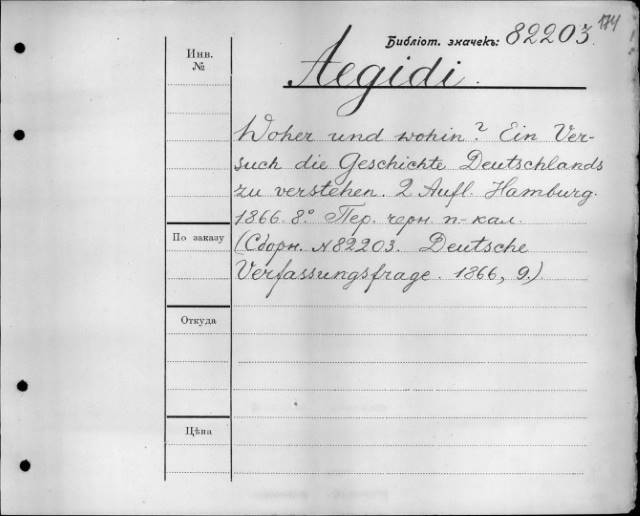 174
Библіот. значекъ: 82203.
Инв.
№
Aegidi.
Woher und wohin? Ein Ver-
such die Geschichte Deutschlands
zu verstehen. 2 Aufl. Hamburg.
1866. 8.° Пер. черн. п-кал.
(Сборн. N 82203. Deutsche
Verfassungsfrage. 1866, 9.)
По заказу
Откуда
Цѣна